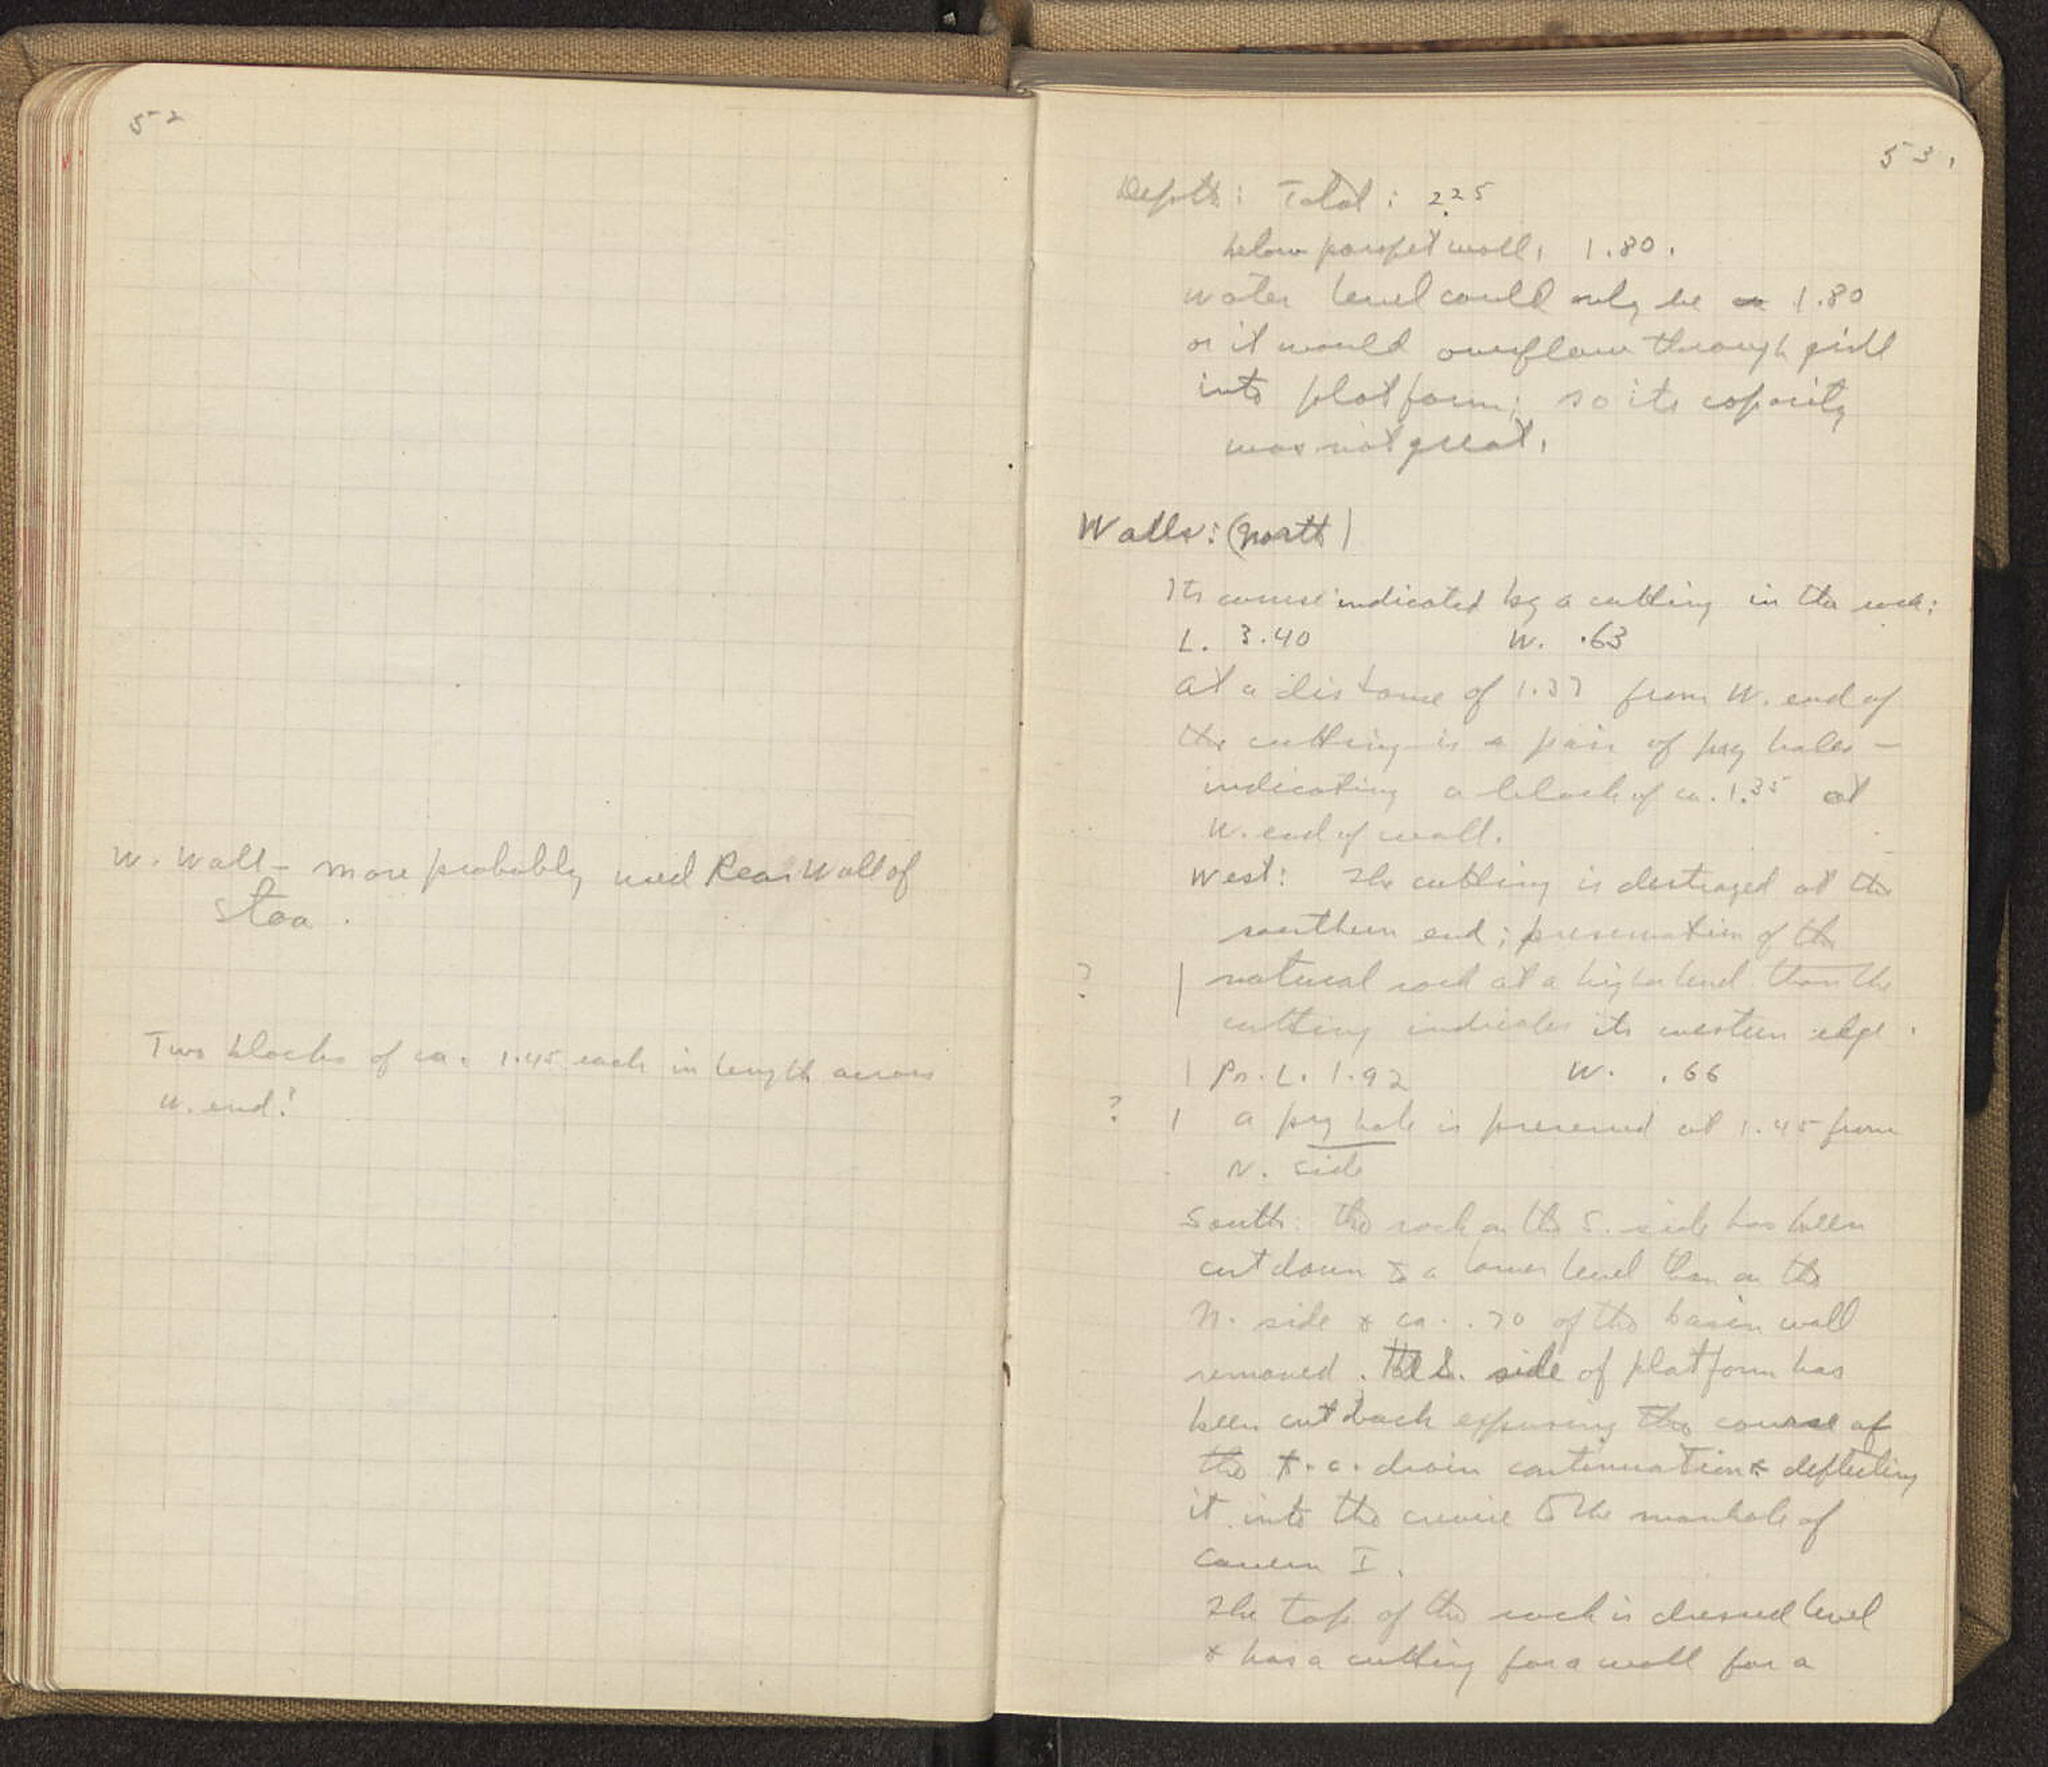 52
W. Wall - more probably used Rear Wall of
Stoa.
Two blocks of ca. 1.45 each in length across
W. end?
53.
Depth: Total: 2.25
below parapet wall, 1.80.
Water level could only be 1.80
or it would overflow through
into platform; so its capacity
was not great.
Walls: (North)
Its course indicated by a cutting in the rock:
L. 3.40 W. .63
At a distance of 1.37 from W. end of
the cutting is a pair of pry holes -
indicating a block of ca. 1.35 at
W. end of wall.
West: The cutting is destroyed at the
southern end; preservation of the
? natural rock at a higher level than the
cutting indicates its western edge.
Pr. L. 1.92 W. .66
? a pry hole is preserved at 1.45 from
N. side
South: the rock on the S. side has been
cut down to a lower level than on the
N. side & ca. .70 of the basin wall
removed. The S. side of platform has
been cut back exposing the course of
the t.c. drain continuation & deflecting
it into the crevice to the manhole of
Cavern I.
The top of the rock is dressed level
& has a cutting for a wall for a